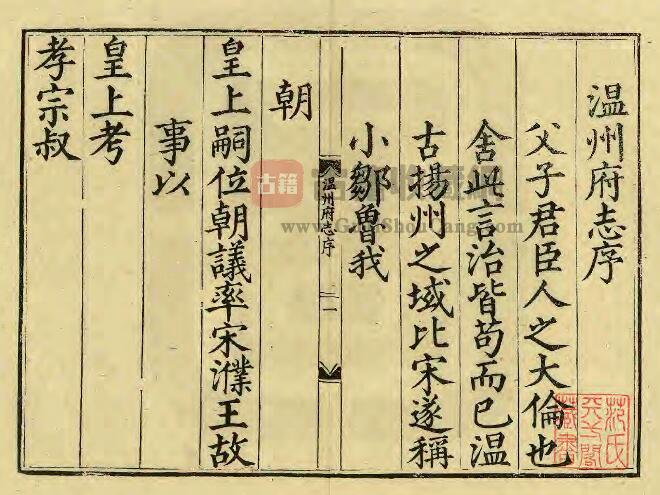 温州府志序
父子君臣人之大倫也
舍此言治皆苟而已温
古揚州之域比宋遂稱
小鄒魯我
温州府志序
一
朝
皇上嗣位朝議率宋濮王故
事以
皇上考
孝宗叔
古籍
www.GujiShouCang.com
范氏天一閣藏書